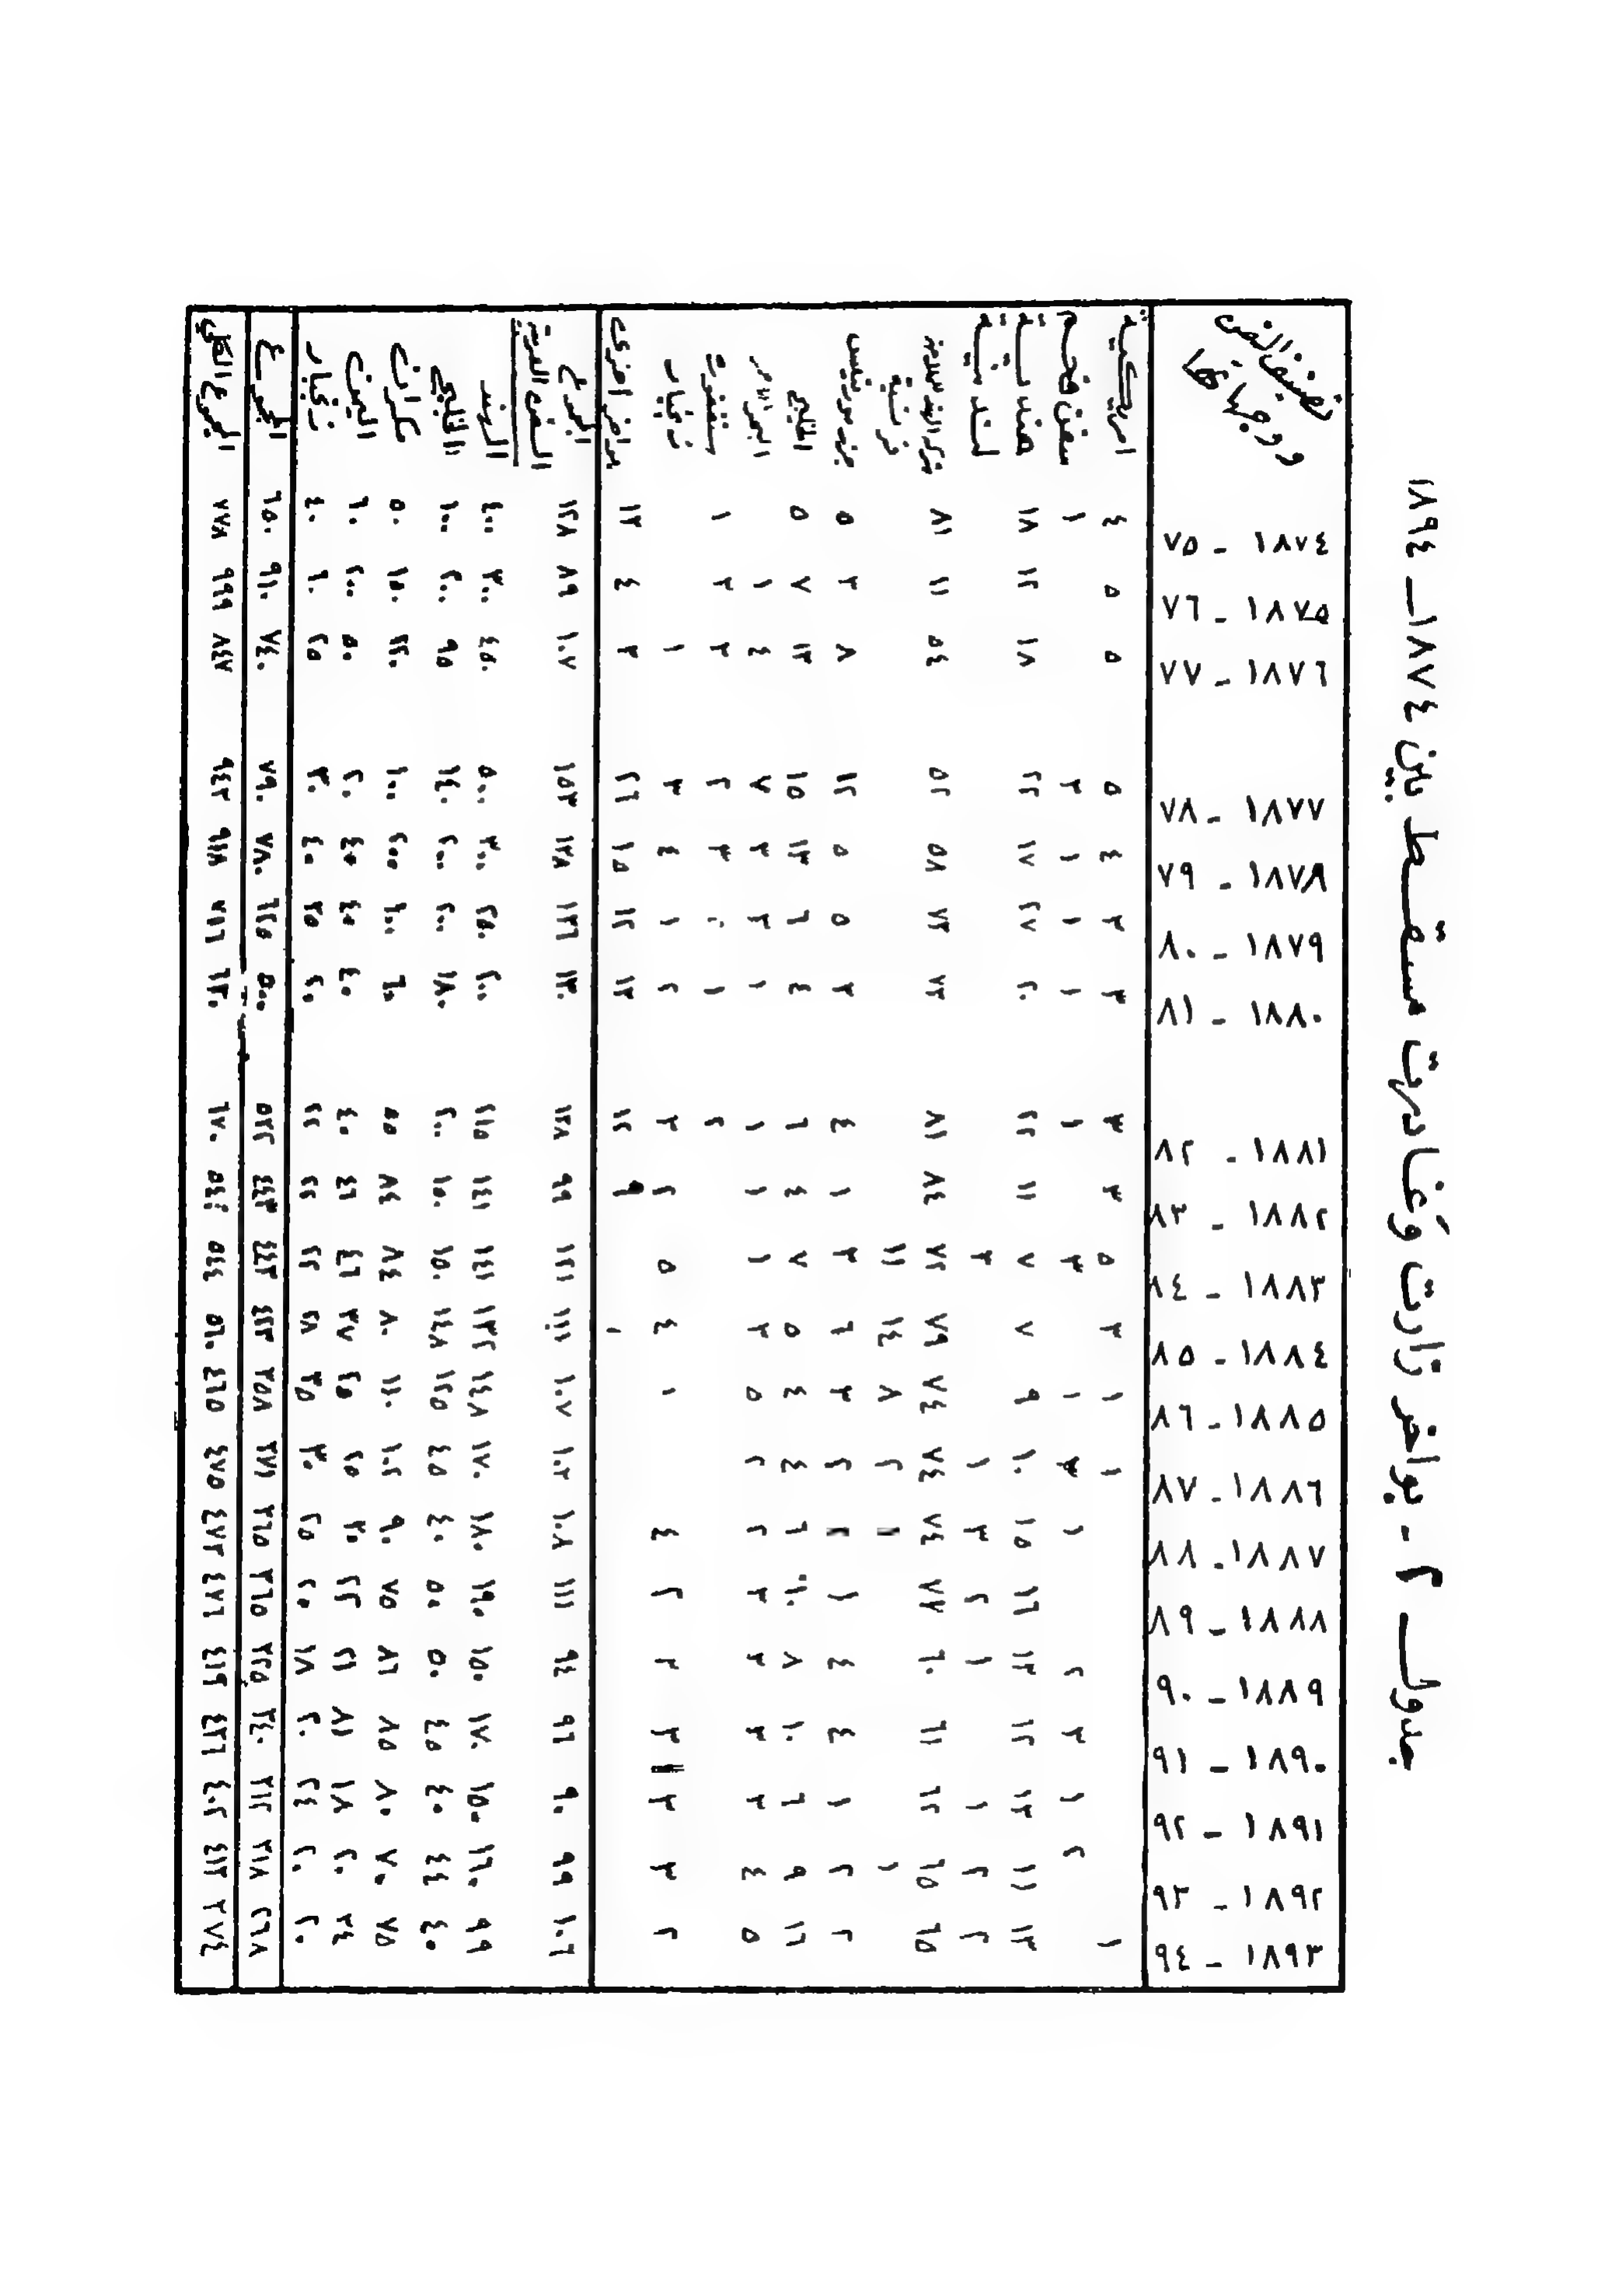 جدول ٢ - بواخر زارت وغادرت مسقط بين ١٨٧٤ - ١٨٩٤
تصنيف السفن ووجهاتها ١٨٧٤ - ٧٥ ١٨٧٥ - ٧٦ ١٨٧٦ - ٧٧ ١٨٧٧ - ٧٨ ١٨٧٨ - ٧٩ ١٨٧٩ - ٨٠ ١٨٨٠ - ٨١ ١٨٨١ - ٨٢ ١٨٨٢ - ٨٣ ١٨٨٣ - ٨٤ ١٨٨٤ - ٨٥ ١٨٨٥ - ٨٦ ١٨٨٦ - ٨٧ ١٨٨٧ - ٨٨ ١٨٨٨ - ٨٩ ١٨٨٩ - ٩٠ ١٨٩٠ - ٩١ ١٨٩١ - ٩٢ ١٨٩٢ - ٩٣ ١٨٩٣ - ٩٤
امريكية ٤ ٥ ٥ ٥ ٤ ٣ ٣ ٣ ٣ ٥ ٣ ١ ١ ١
سفن فحم ١ ٢ ١ ١ ١ ١ ٣ ١ ٣ ١ ٢ ٢ ١ ٢
هندية ١٨ ١٢ ١٨ ٢٢ ١٧ ٢٧ ٢٠ ٢٢ ١١ ٧ ٧ ٩ ١٠ ١٥ ١٦ ١٣ ١٢ ١٢ ١١ ١٣
لندنية ٣ ١ ٣ ٢ ١ ١ ٢ ٢
شركة الهند للملاحة ٨١ ١١ ٥٤ ٥٢ ٥٨ ٧٣ ٧٢ ٨١ ٨٤ ٧٢ ٧٩ ٧٤ ٧٤ ٧٤ ٧٧ ٦٠ ٦١ ٦٢ ٦٥ ٦٥
فرنسية ١١ ١٤ ٨ ٢ ١ ١
جزر موريشس ٥ ٣ ٨ ١٢ ٥ ٥ ٣ ٤ ١ ٣ ٦ ٣ ٢ ٢ ١ ٤ ٤ ١ ٢ ٢
الخليج ٥ ٧ ١٣ ١٥ ١٣ ٦ ٤ ٦ ٤ ٧ ٥ ٤ ٤ ٦ ١٠ ٨ ١٠ ٦ ٩ ١٦
البحر الأحمر ١ ٤ ٧ ٢ ٢ ١ ١ ١ ١ ٢ ٥ ٢ ٢ ٢ ٢ ٣ ٢ ٤ ٥
سنغفورة ١ ٢ ٢ ٢ ٣ ١ ٢
زنجبار ١ ٣ ٤ ١ ٢ ٢ ٢ ٥ ٤ ١ ٤ ٢ ٢ ٣ ٢ ٣ ٢
مواضع اخرى ١٣ ٤ ٣ ٢٦ ١٥ ١٢ ١٣ ١٤ ٩ ١
المجموع ١٢٨ ٨٩ ١٠٧ ١٥٣ ١٢٨ ١٣٦ ١٣٠ ١٣٨ ٩٩ ١٢١ ١١١ ١٠٧ ١٠٢ ١٠٨ ١١١ ٩٤ ٩٦ ٩٠ ٩٩ ١٠٦
السفن العربية
الهند ٤٠٠ ٣٠٠ ٤٥٠ ٥٠٠ ٣٠٠ ٢٥٠ ٢٠٠ ٢١٥ ١٤١ ١٤١ ١٣٢ ١٤٨ ١٧٠ ١٨٠ ١٩٠ ١٥٠ ١٧٠ ١٥٠ ١٦٠ ٩٩
الخليج ١٠٠ ٢٠٠ ٩٥ ١٤٠ ٢٠٠ ٢٠٠ ١٨٠ ٢٠٠ ١٥٠ ١٥٠ ١٤٨ ١٢٥ ٤٥ ٤٠ ٥٠ ٥٠ ٤٥ ٤٠ ٤٤ ٤٠
مكران ٥٠ ١٥٠ ١٢٠ ١٠٠ ٢٠٠ ١٠٠ ٦٠ ٥٥ ٨٤ ٨٤ ٨٠ ١١٠ ١٠٢ ٩٠ ٧٥ ٨٦ ٨٥ ٨٠ ٧٠ ٧٥
اليمن ٦٠ ٢٠٠ ٥٠ ٢٠ ٤٠ ٤٠ ٤٠ ٤٠ ٤٦ ٤٦ ٣٧ ٤٥ ٢٥ ٣٠ ٢٢ ٢١ ١٨ ١٨ ٢٠ ٣٤
زنجبار ٤٠ ٦٠ ٢٥ ٣٠ ٤٠ ٣٥ ٢٠ ٢٢ ٢٢ ٢٢ ٢٨ ٣٥ ٣٠ ٢٥ ٢٥ ١٨ ٢٠ ٢٤ ٢٠ ٢٠
المجموع ٦٥٠ ٩١٠ ٧٤٠ ٧٩٠ ٧٨٠ ٦٢٥ ٥٠٠ ٥٣٢ ٤٤٣ ٤٤٣ ٤٤٣ ٣٥٨ ٣٧١ ٣٦٥ ٣٦٥ ٣٢٥ ٣٤٠ ٣١٢ ٣١٨ ٢٦٨
المجموع الكلي ٧٧٨ ٩٩٩ ٨٤٧ ٩٤٣ ٩١٨ ٧٥٦ ٦٣٠ ٦٧٠ ٥٤٤ ٥٤٤ ٥٦٠ ٤٦٥ ٤٧٥ ٤٧٣ ٤٧٦ ٤١٩ ٤٣٦ ٤٠٢ ٤١٣ ٣٧٤